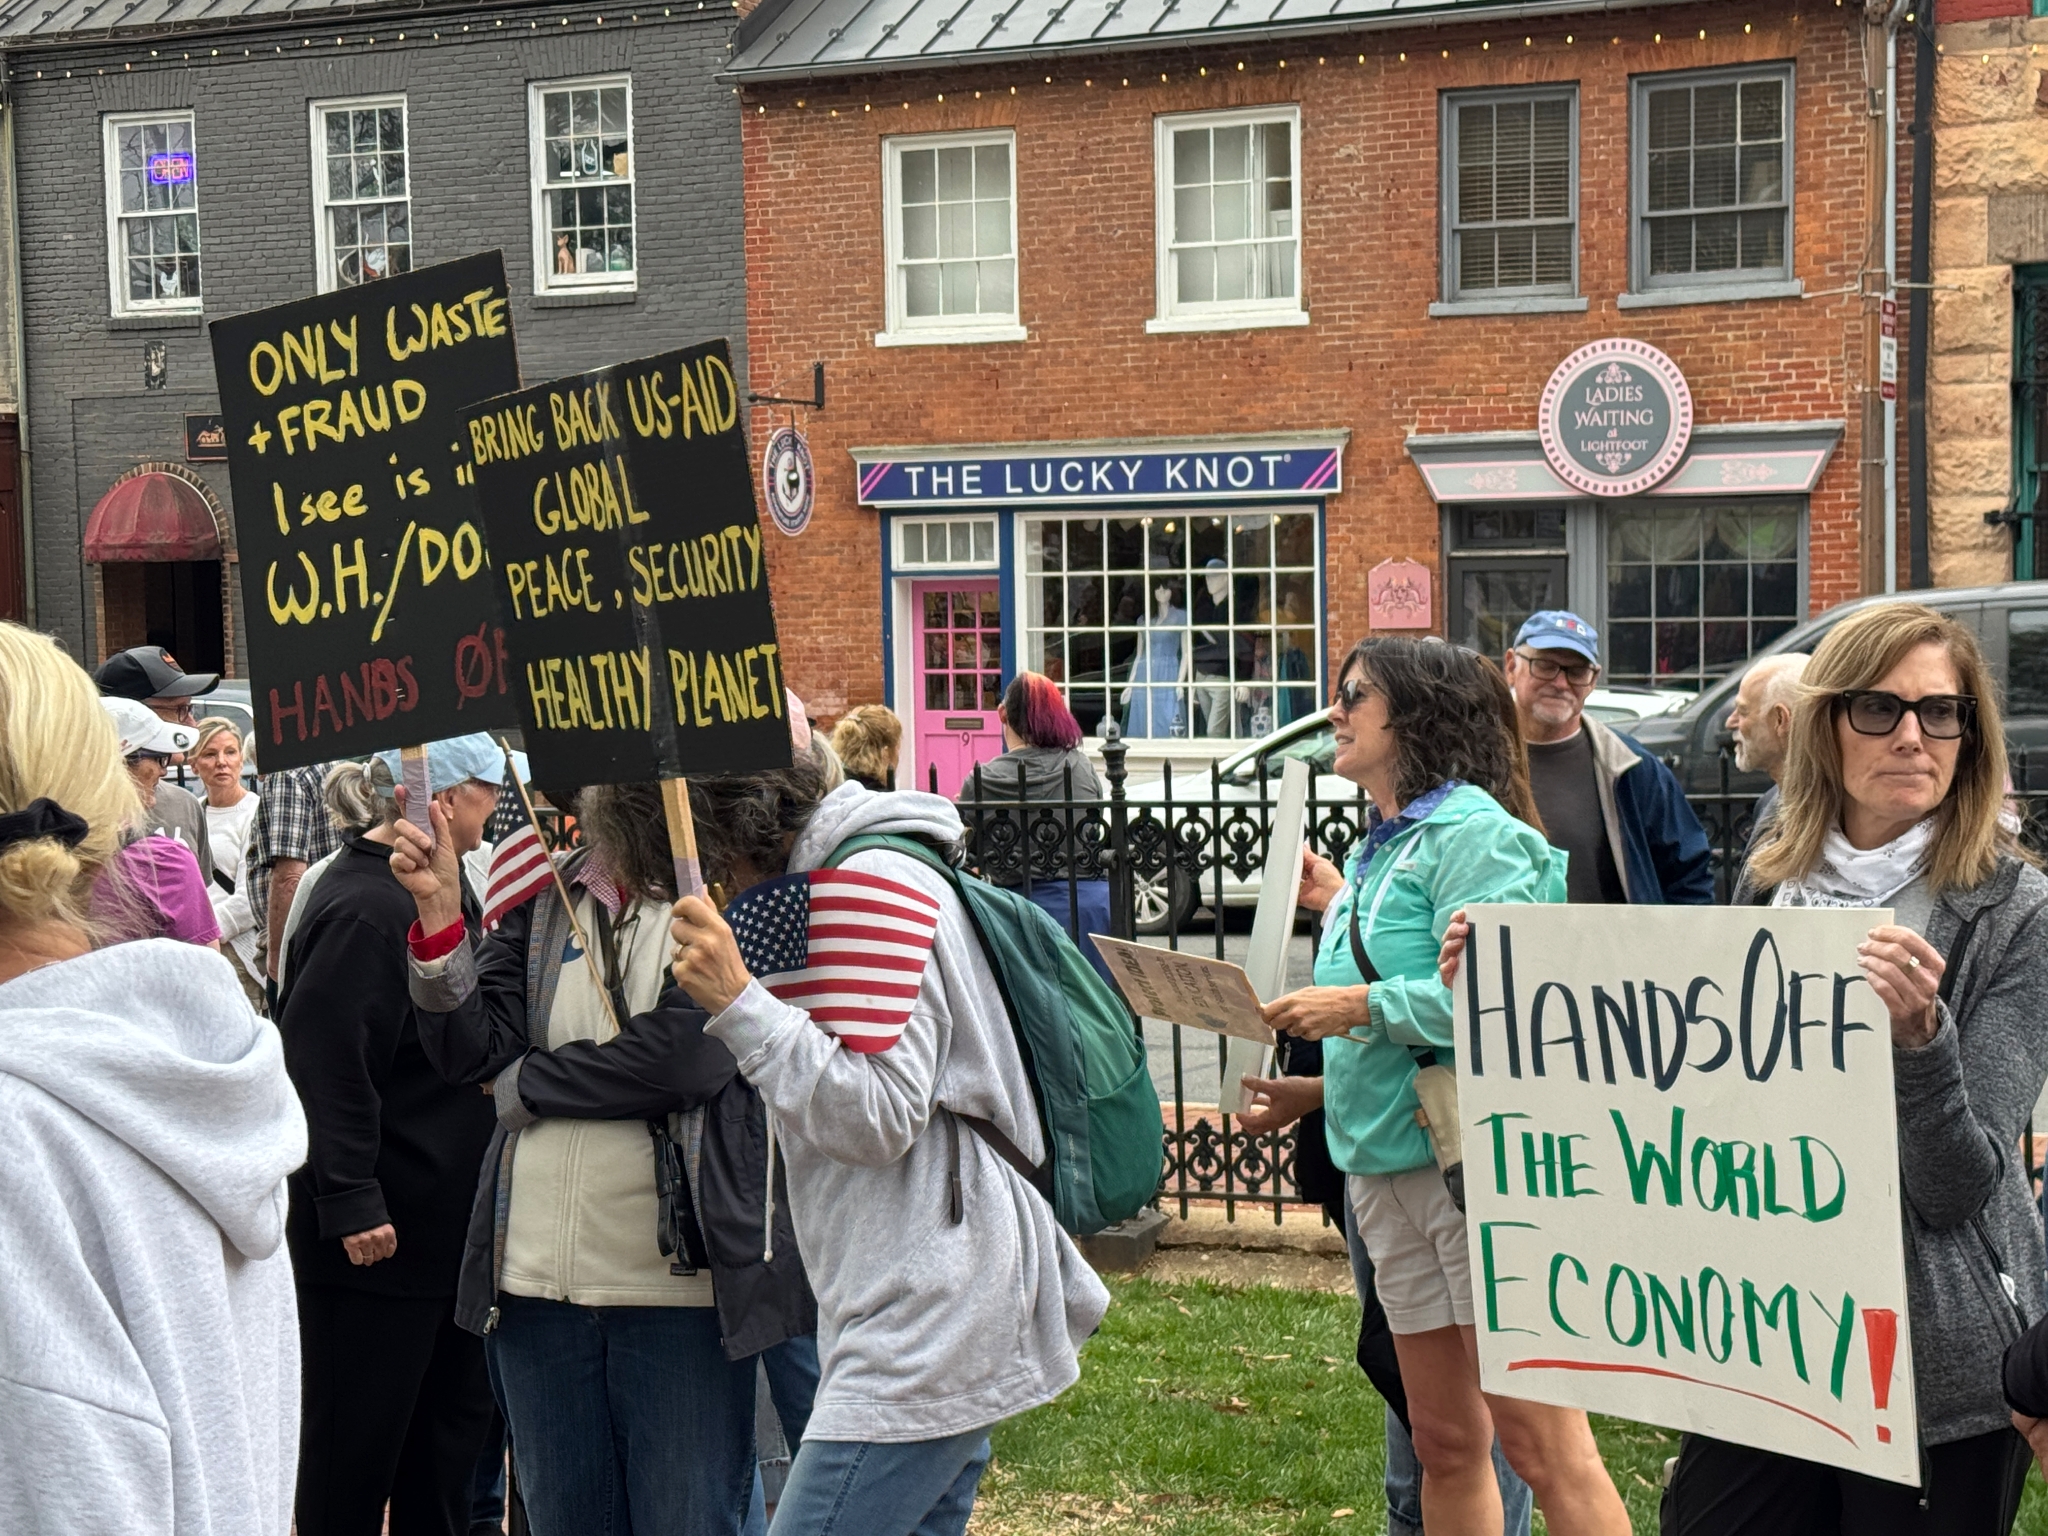 OPEN
ONLY WASTE
+ FRAUD
I see is
W.H./DO
HANDS
BRING BACK US-AID
GLOBAL
PEACE, SECURITY
HEALTHY PLANET
THE LUCKY KNOT
LADIES
WAITING
at
LIGHTFOOT
9
EDUCATION
HANDS OFF
THE WORLD
ECONOMY!